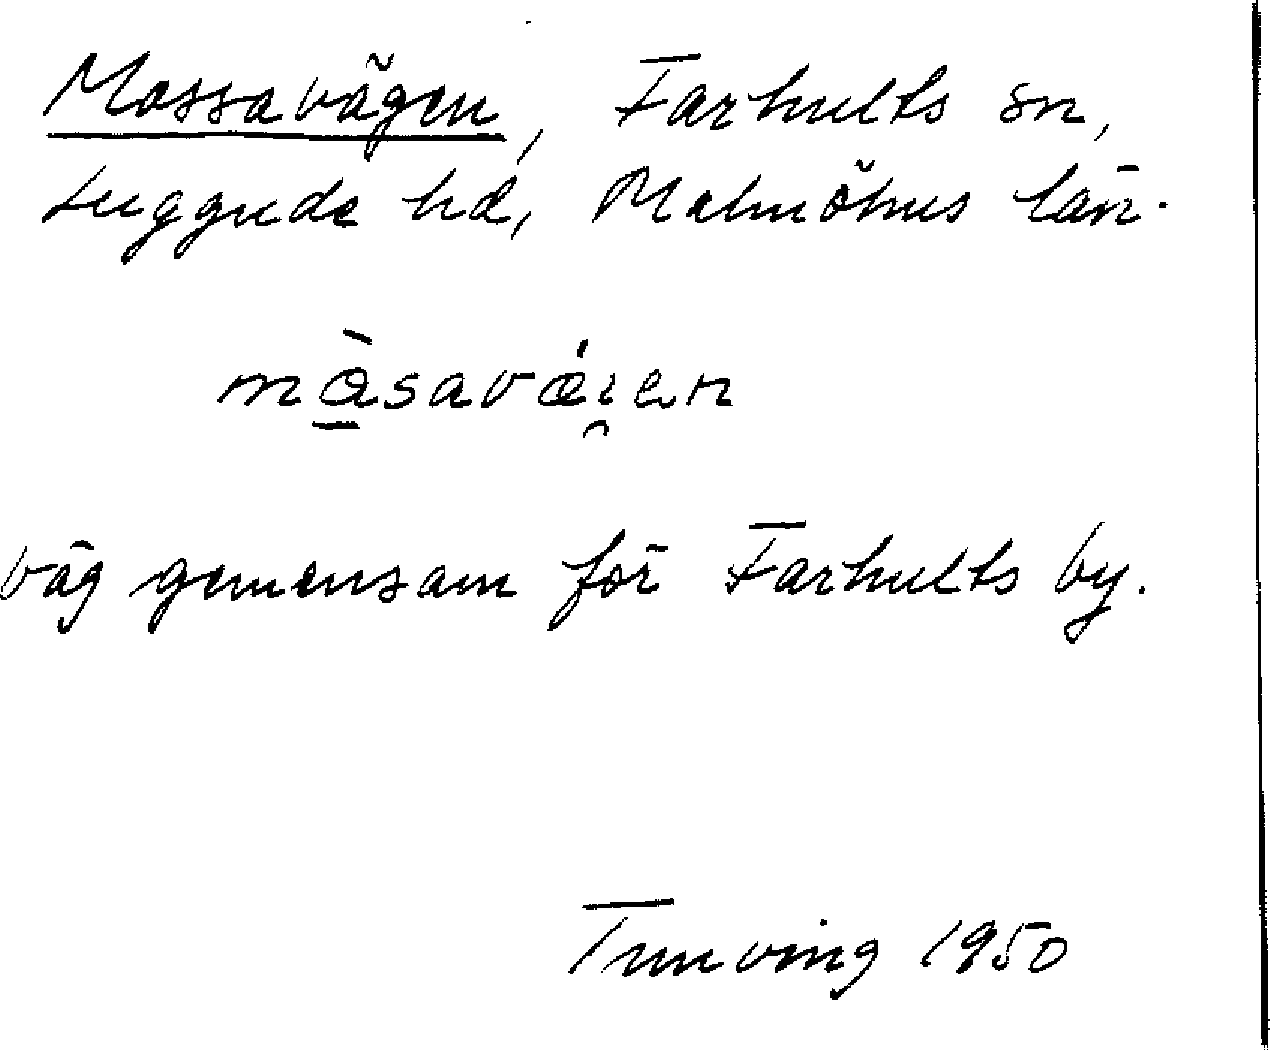 Mossavägen, Farhults sn,
Luggude hd, Malmöhus län.
mə̀savǽi̯en
väg gemensam för Farhults by.
Tunving 1950